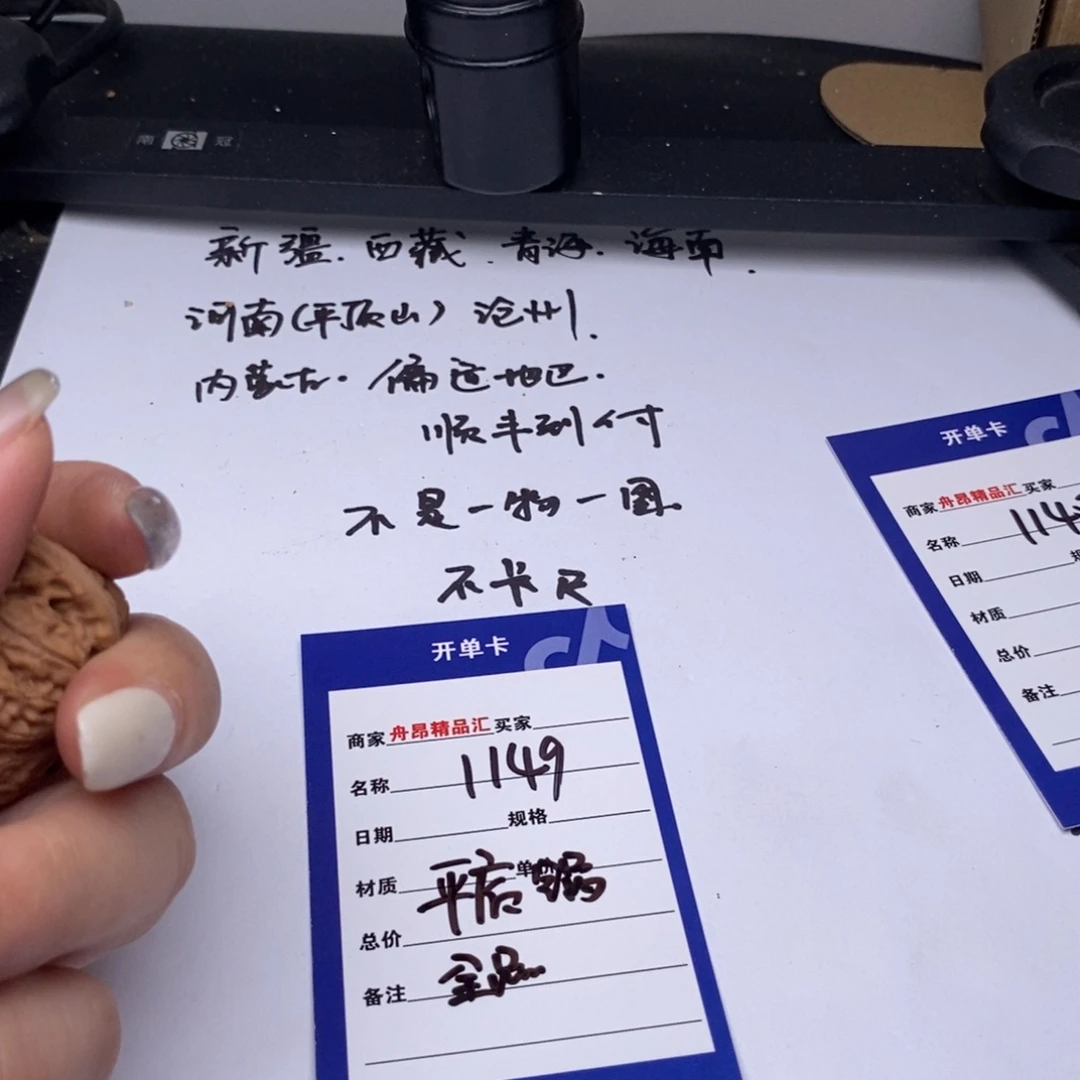 南冠
新疆.西藏.青海.海南.
河南(平顶山)沧州.
内蒙古.偏远地区.
顺丰到付
不是一物一图.
不卡尺
开单卡
商家 舟昂精品汇 买家
名称 1149
日期 规格
材质 平底 单
总价
备注
开单卡
商家 舟昂精品汇 买家
名称 114
日期
材质
总价
备注